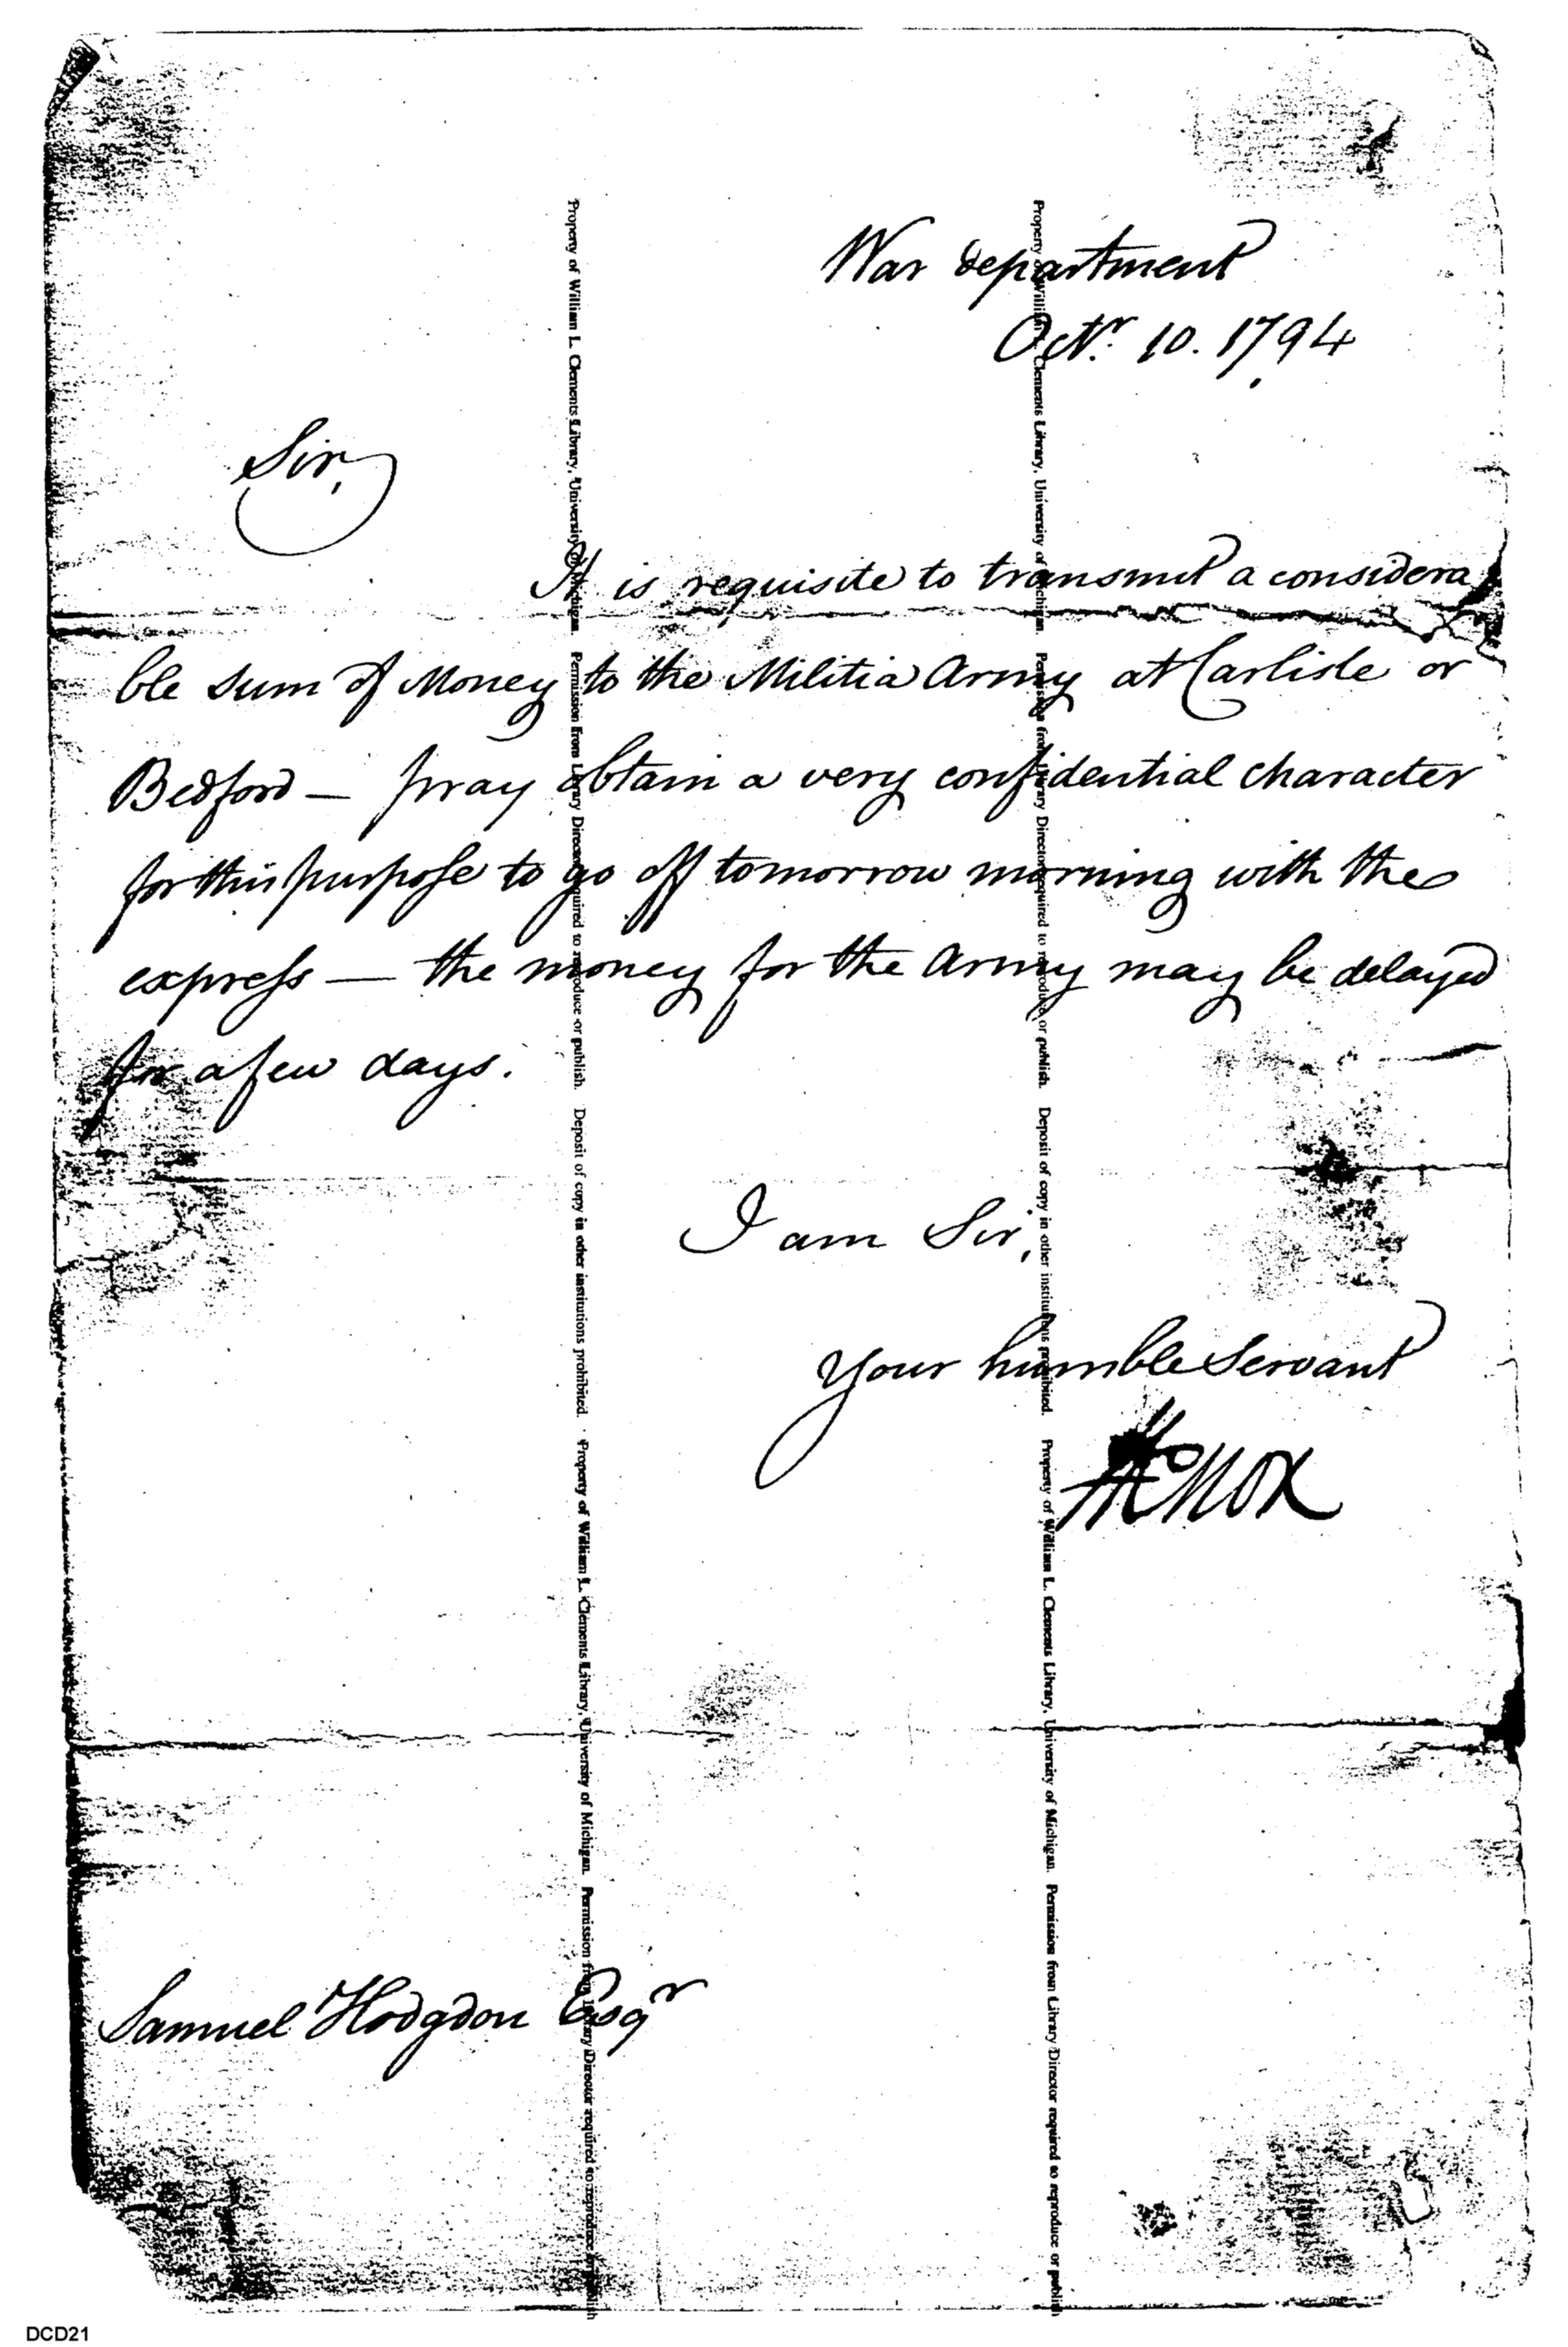 War department
Octr. 10. 1794
Sir,
It is requisite to transmit a considera
ble sum of Money to the Militia Army at Carlisle or
Bedford — pray obtain a very confidential character
for this purpose to go off tomorrow morning with the
express — the money for the Army may be delayed
for a few days.
I am Sir,
Your humble Servant
HKnox
Samuel Hodgdon Esqr
Property of William L. Clements Library, University of Michigan. Permission from Library Director required to reproduce or publish. Deposit of copy in other institutions prohibited. Property of William L. Clements Library, University of Michigan. Permission from Library Director required to reproduce or publish
Property of William L. Clements Library, University of Michigan. Permission from Library Director required to reproduce or publish. Deposit of copy in other institutions prohibited. Property of William L. Clements Library, University of Michigan. Permission from Library Director required to reproduce or publish
DCD21